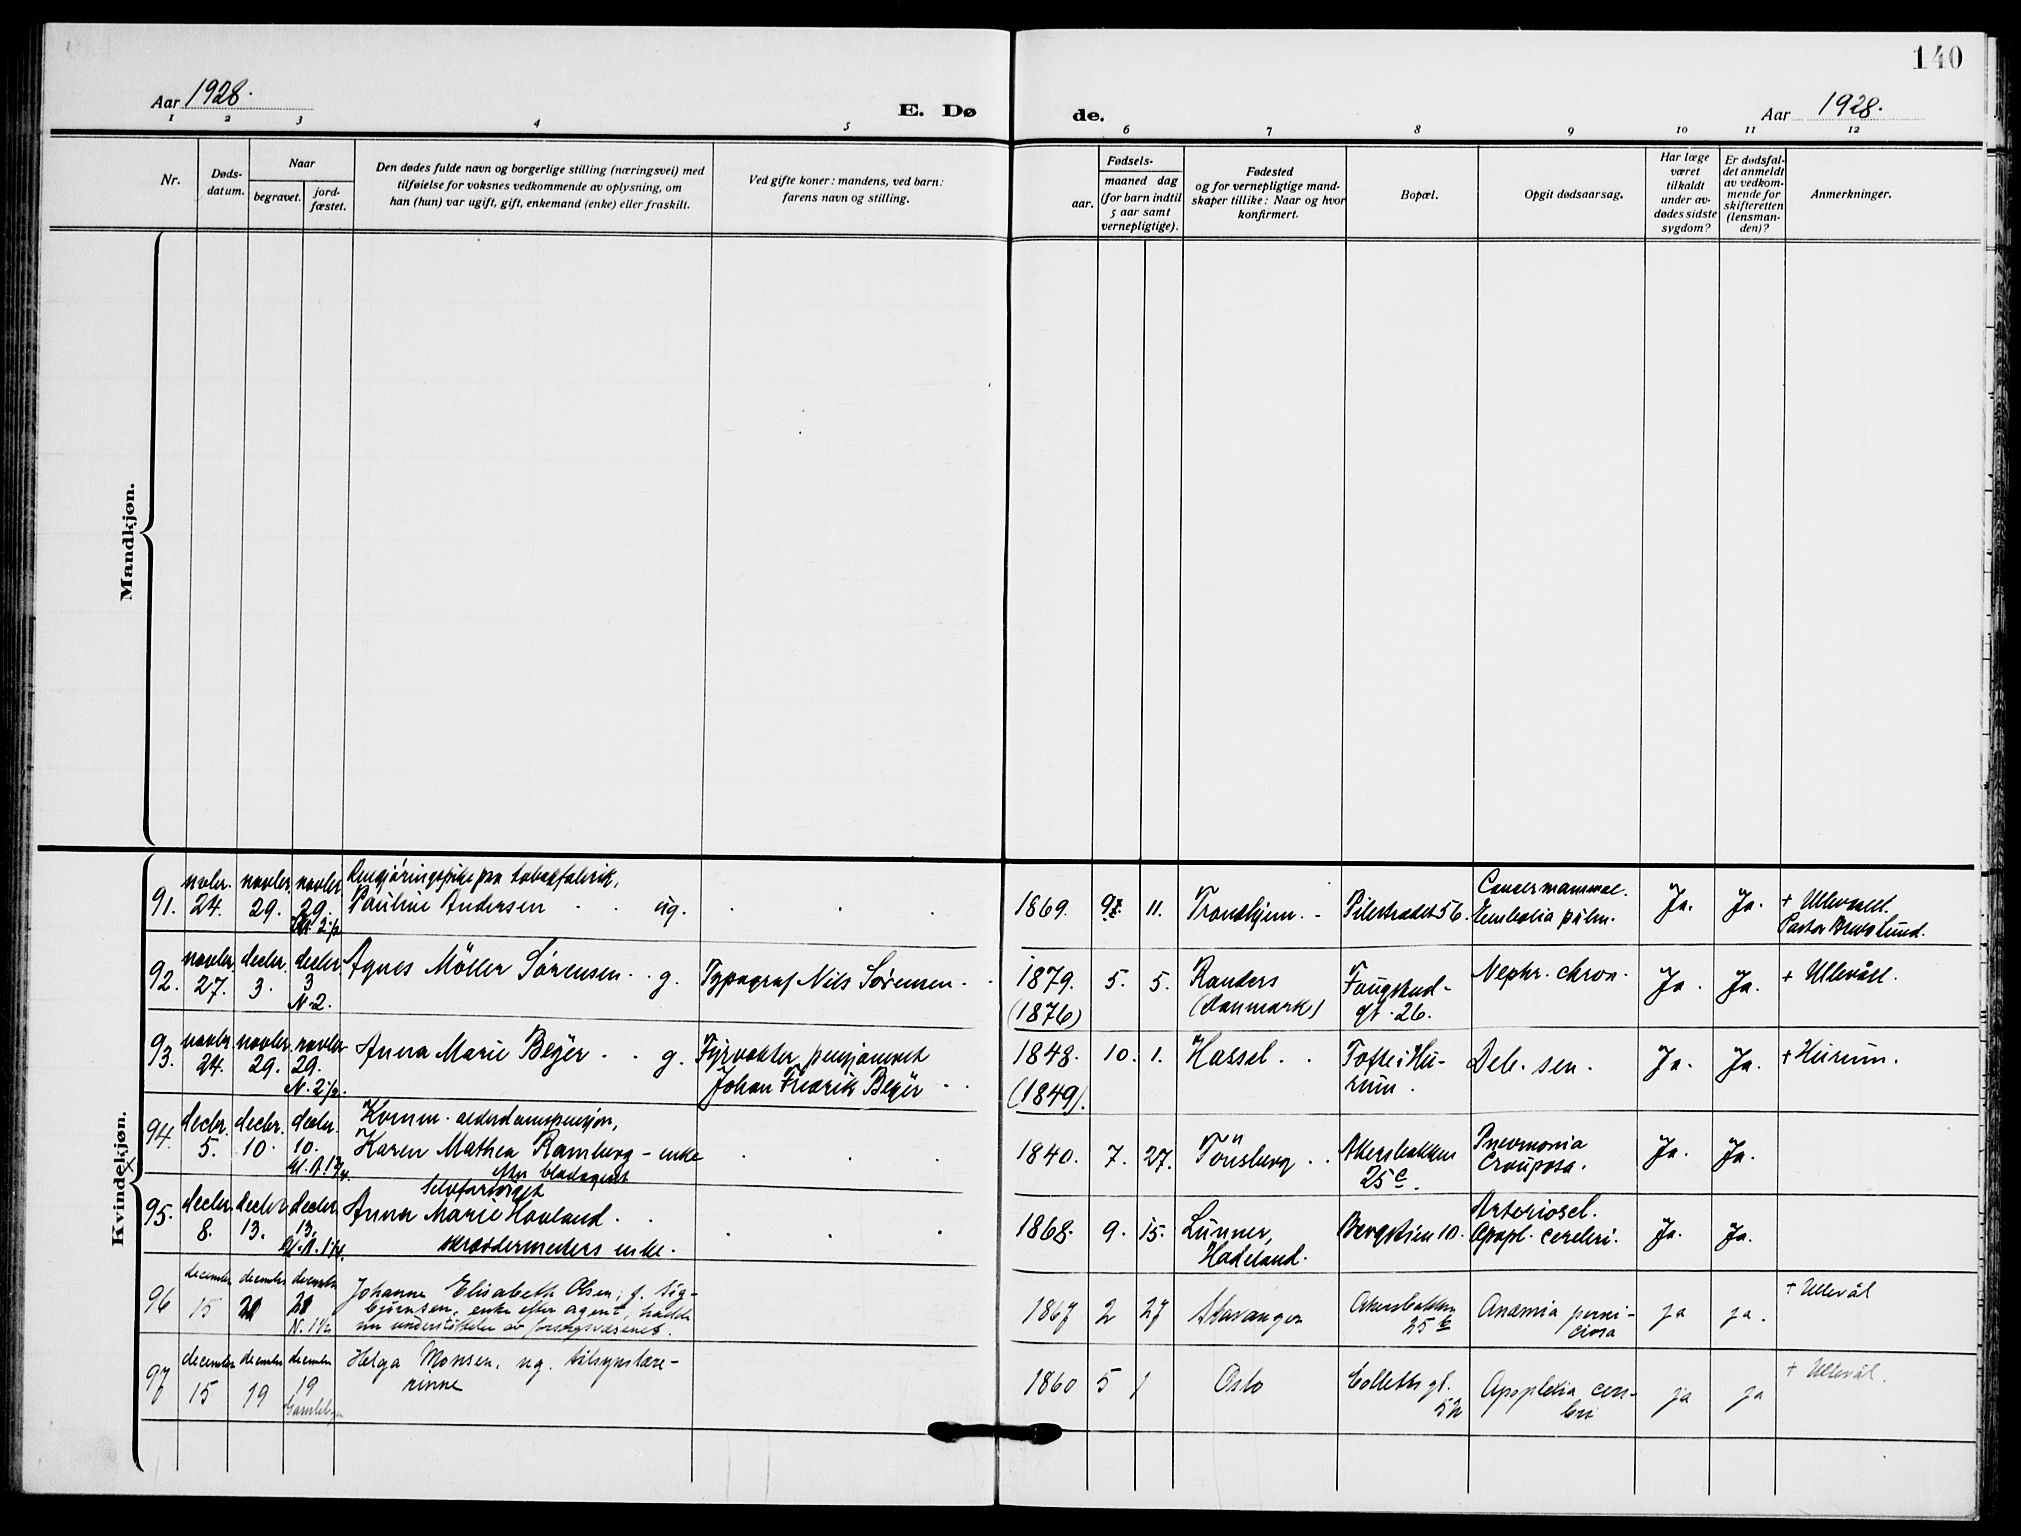 140
Aar 1928.
E. Dø de.
Aar 1928.
1 2 3 4 5 6 7 8 9 10 11 12
Nr.
Døds-
datum.
Naar
begravet.
jord-
fæstet.
Den dødes fulde navn og borgerlige stilling (næringsvei) med
tilføielse for voksnes vedkommende av oplysning, om
han (hun) var ugift, gift, enkemand (enke) eller fraskilt.
Ved gifte koner: mandens, ved barn:
farens navn og stilling.
Fødsels-
aar.
maaned dag
(for barn indtil
5 aar samt
vernepligtige).
Fødested
og for vernepligtige mand-
skaper tillike: Naar og hvor
konfirmert.
Bopæl.
Opgit dødsaarsag.
Har læge
været
tilkaldt
under av-
dødes sidste
sygdom?
Er dødsfal-
det anmeldt
av vedkom-
mende for
skifteretten
(lensman-
den)?
Anmerkninger.
Mandkjøn.
Kvindekjøn.
91. novbr. 24. novbr. 29. novbr. 29.
Rengjøringspike paa tobakfabrik,
Pauline Andersen ug.
1869. 11. Trondhjem. Pilestrædet 56.
Cancer mammae.
Embolia pulm.
Ja. Ja. + Ullevaal.
Pastor
92. novbr. 27. decbr. 3. decbr. 3
N. 2.
Agnes Möller Sørensen g. Typograf Nils Sørensen.
1879. 5. 5. Randers
(1876) (Danmark)
Fougstad-
gt. 26.
Nephr. chron. Ja. Ja. + Ullevål.
93. novbr. 24. novbr. 29. novbr. 29.
N. 2 1/2.
Anna Marie Beyer g. Fyrvokter, pensjoneret
Johan Fredrik Beyer
1848. 10. 1. Hassel. Tofte i Hu-
(1849). rum.
Deb. sen. Ja. Ja. + Hurum.
94. decbr. 5. decbr. 10. decbr. 10.
Komm. alderdomspensjon,
Karen Mathea Ramberg – enke
efter bladagent
1840. 7. 27. Tönsberg. Akersbakken
25 c.
Pneumonia
crouposa.
Ja. Ja.
95. decbr. 8. decbr. 13. decbr. 13.
Selvforsørget
Anna Marie Hovland.
skræddermesters enke.
1868. 9. 15. Lunner,
Hadeland.
Bergstien 10.
Arterioscl.
Apopl. cerebri.
Ja. Ja.
96 december 15 december december
N. 1 1/2
Johanne Elisabeth Olsen, f. Sig-
bjørnsen, enke efter agent, hadde
understøttelse av forsorgsvæsenet.
1867 2 27 Stavanger Akersbakken
25
Anæmia perni-
ciosa
ja ja. + Ullevål
97 december 15 december 19 december 19
Gamlebyen
Helga Monsen, ug. tilsynslære-
rinne
1860 5 1 Oslo Colletts gt.
52
Apoplexia cere-
bri
ja ja + Ullevål.